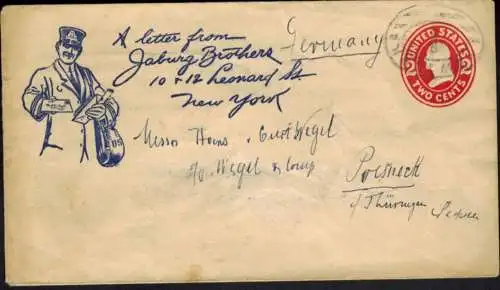 A letter from
Jaburg Brothers
10 & 12 Leonard St.
New York
Germany
UNITED STATES
2 2
TWO CENTS
US
Messrs Hans & Curt Wegel
c/o Wegel & Comp
Poesneck
i/Thüringen